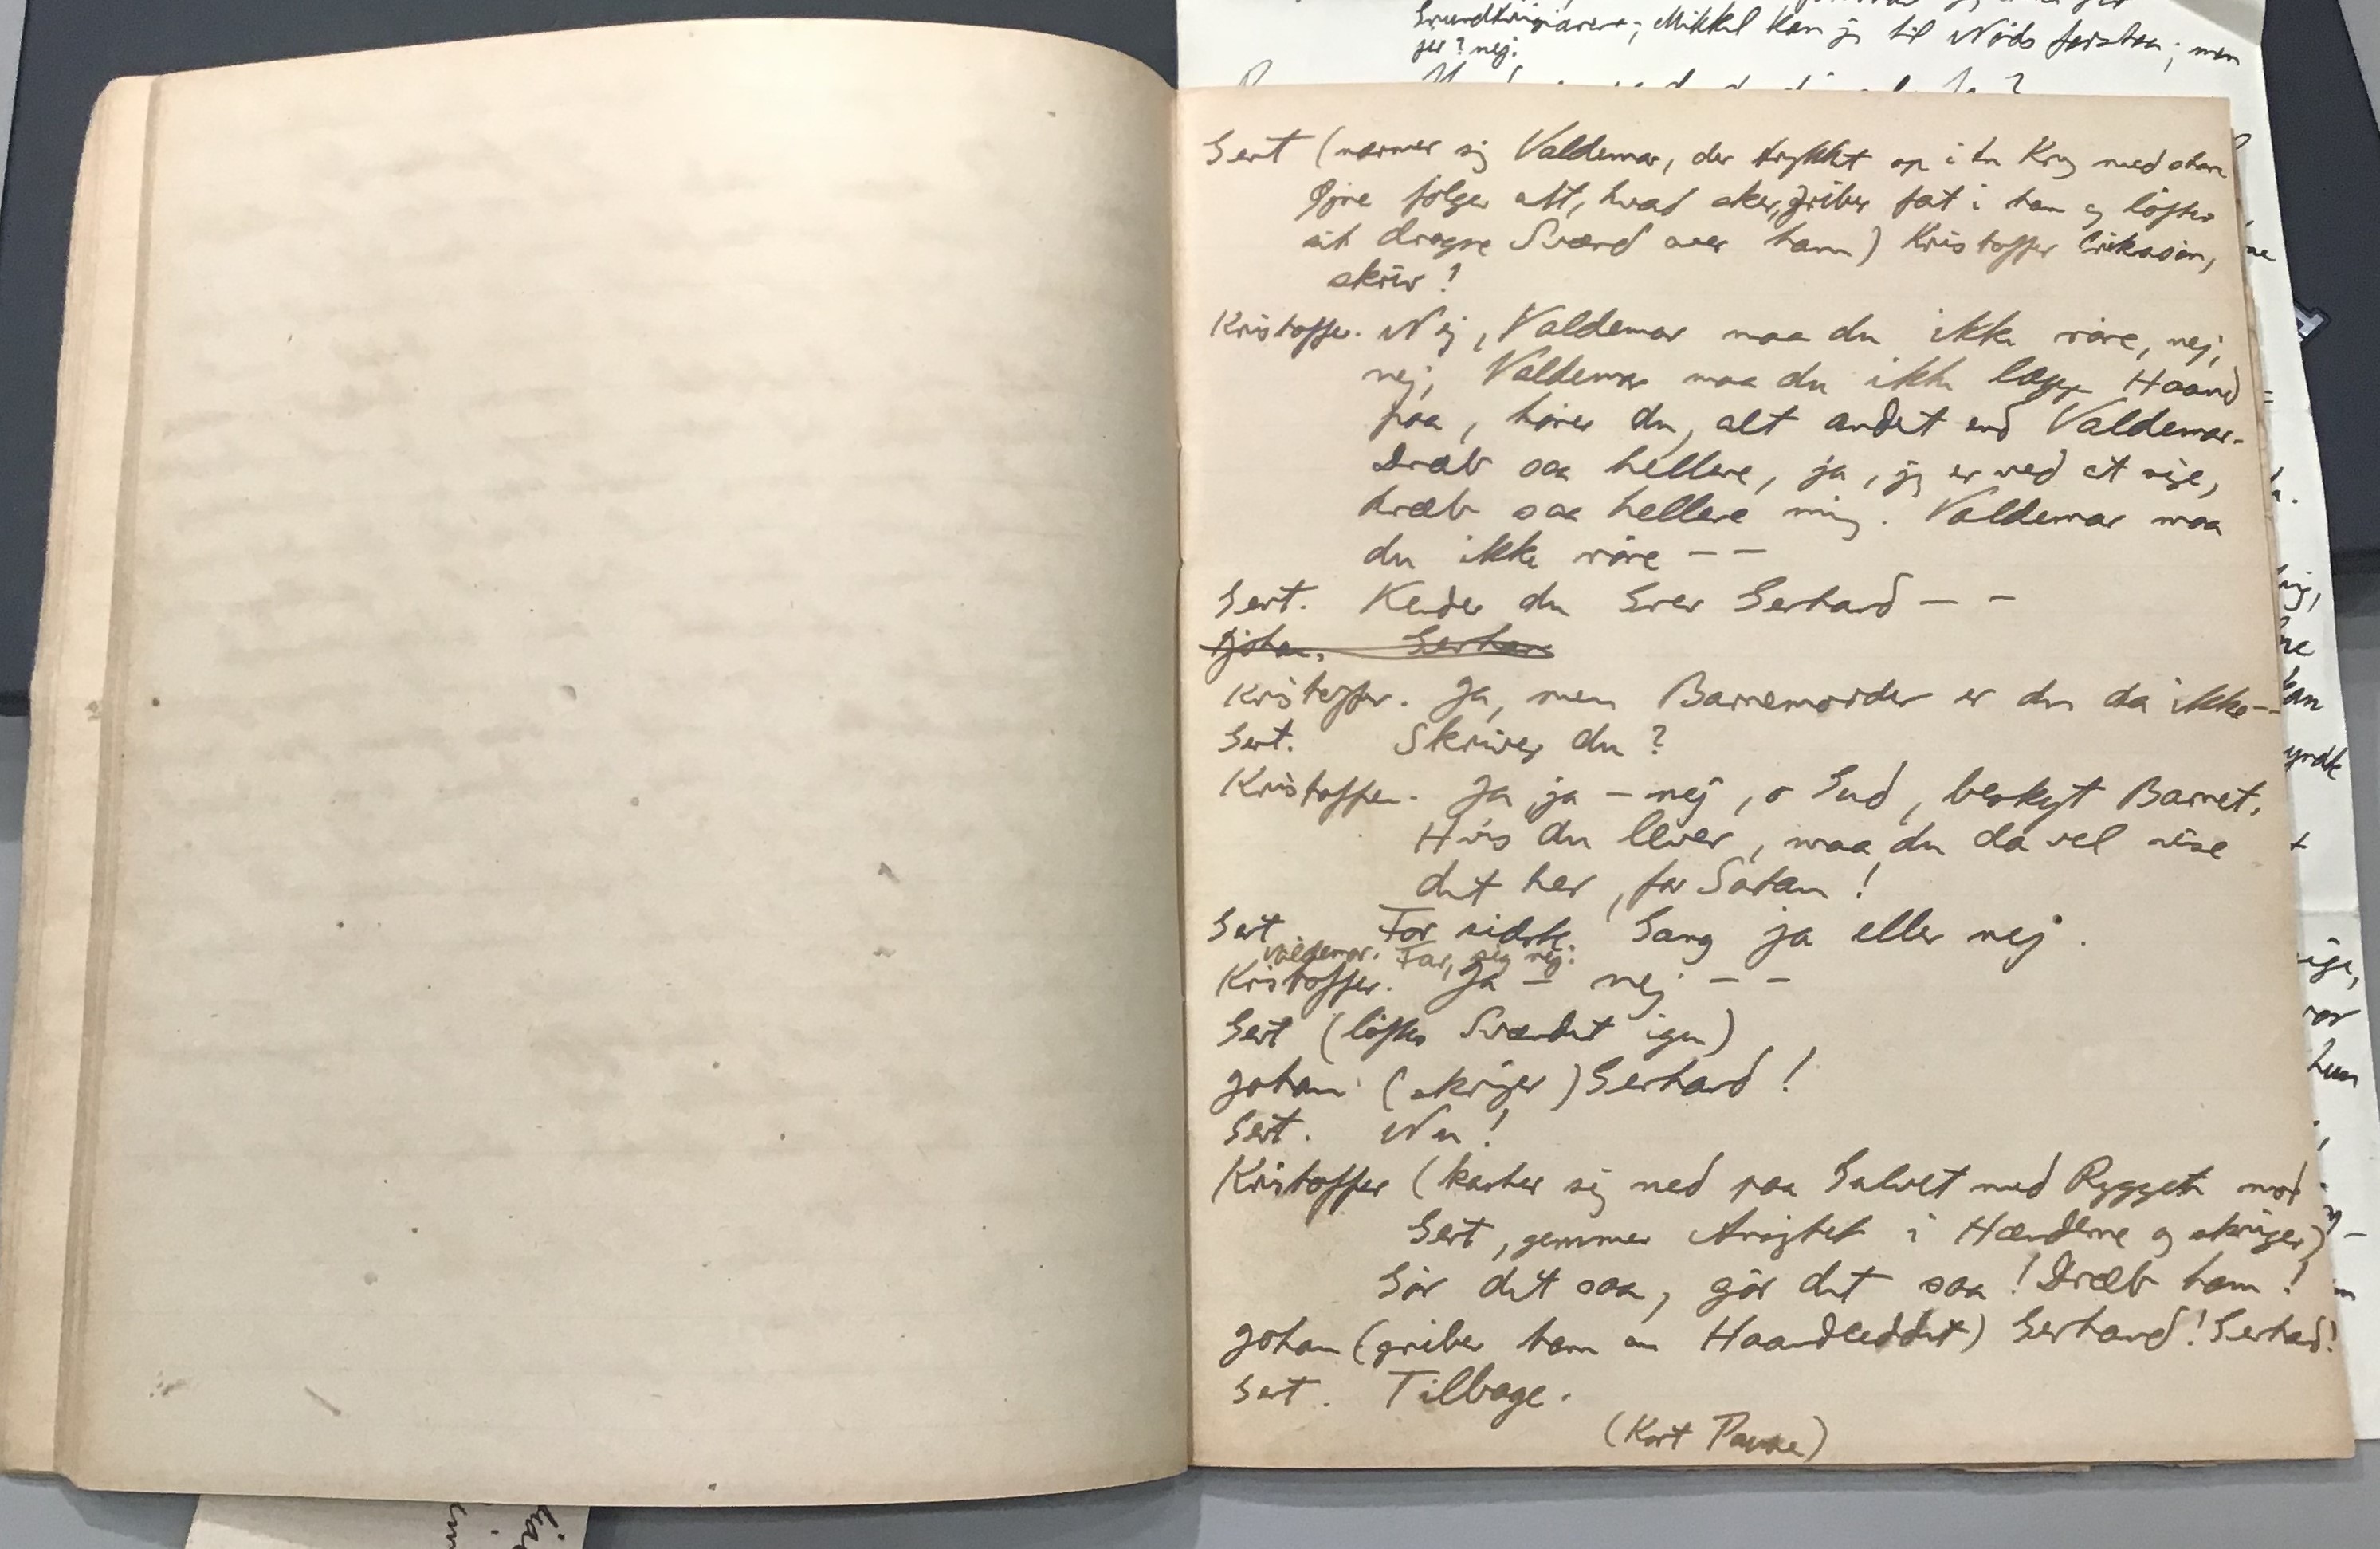 Grundtvigianere; Mikkel kan jo til Nöds forstaa; men
jer? nej.
Gert (nærmer sig Valdemar, der trykket op i en Krog med store
Øjne følger alt, hvad sker, griber fat i ham og löfter
sit dragne Sværd over ham) Kristoffer Eriksøn,
skriv!
Kristoffer. Nej, Valdemar maa du ikke röre, nej,
nej, Valdemar maa du ikke lægge Haand
paa, hörer du, alt andet end Valdemar.
Dræb saa hellere, ja, jeg er ved at sige,
dræb saa hellere mig. Valdemar maa
du ikke röre — —
Gert. Kender du Grev Gerhard — —
Kristoffer. Ja, men Barnemorder er du da ikke--
Gert. Skriver du?
Kristoffer. Ja ja — nej, o Gud, beskyt Barnet.
Hvis du lever, maa du da vel vise
det her, for Satan!
Gert For sidste Gang ja eller nej.
Valdemar. Far, sig nej.
Kristoffer. Ja — nej — —
Gert (löfter Sværdet igen)
Johan (skriger) Gerhard!
Gert. Nu!
Kristoffer (kaster sig ned paa Gulvet med Ryggen mod
Gert, gemmer Ansigtet i Hænderne og skriger)
Gör det saa, gör det saa! Dræb ham!
Johan (griber ham om Haandleddet) Gerhard! Gerhard!
Gert. Tilbage.
(Kort Pause)